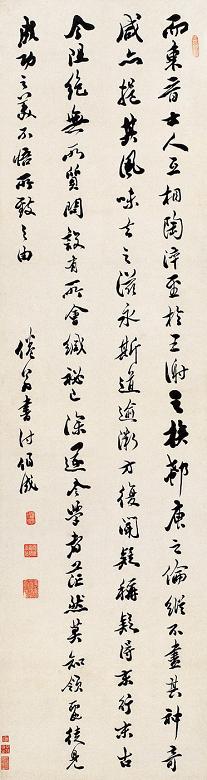 而東晉士人互相陶淬至於王謝之族郗庾之倫縱不盡其神奇
咸亦挹其風味去之滋永斯道逾微方復聞疑稱疑得末行末古
今阻絕無所質問設有所會緘秘已深遂令學者茫然莫知領要徒見
成功之美不悟所致之由
倦翁書付伯成